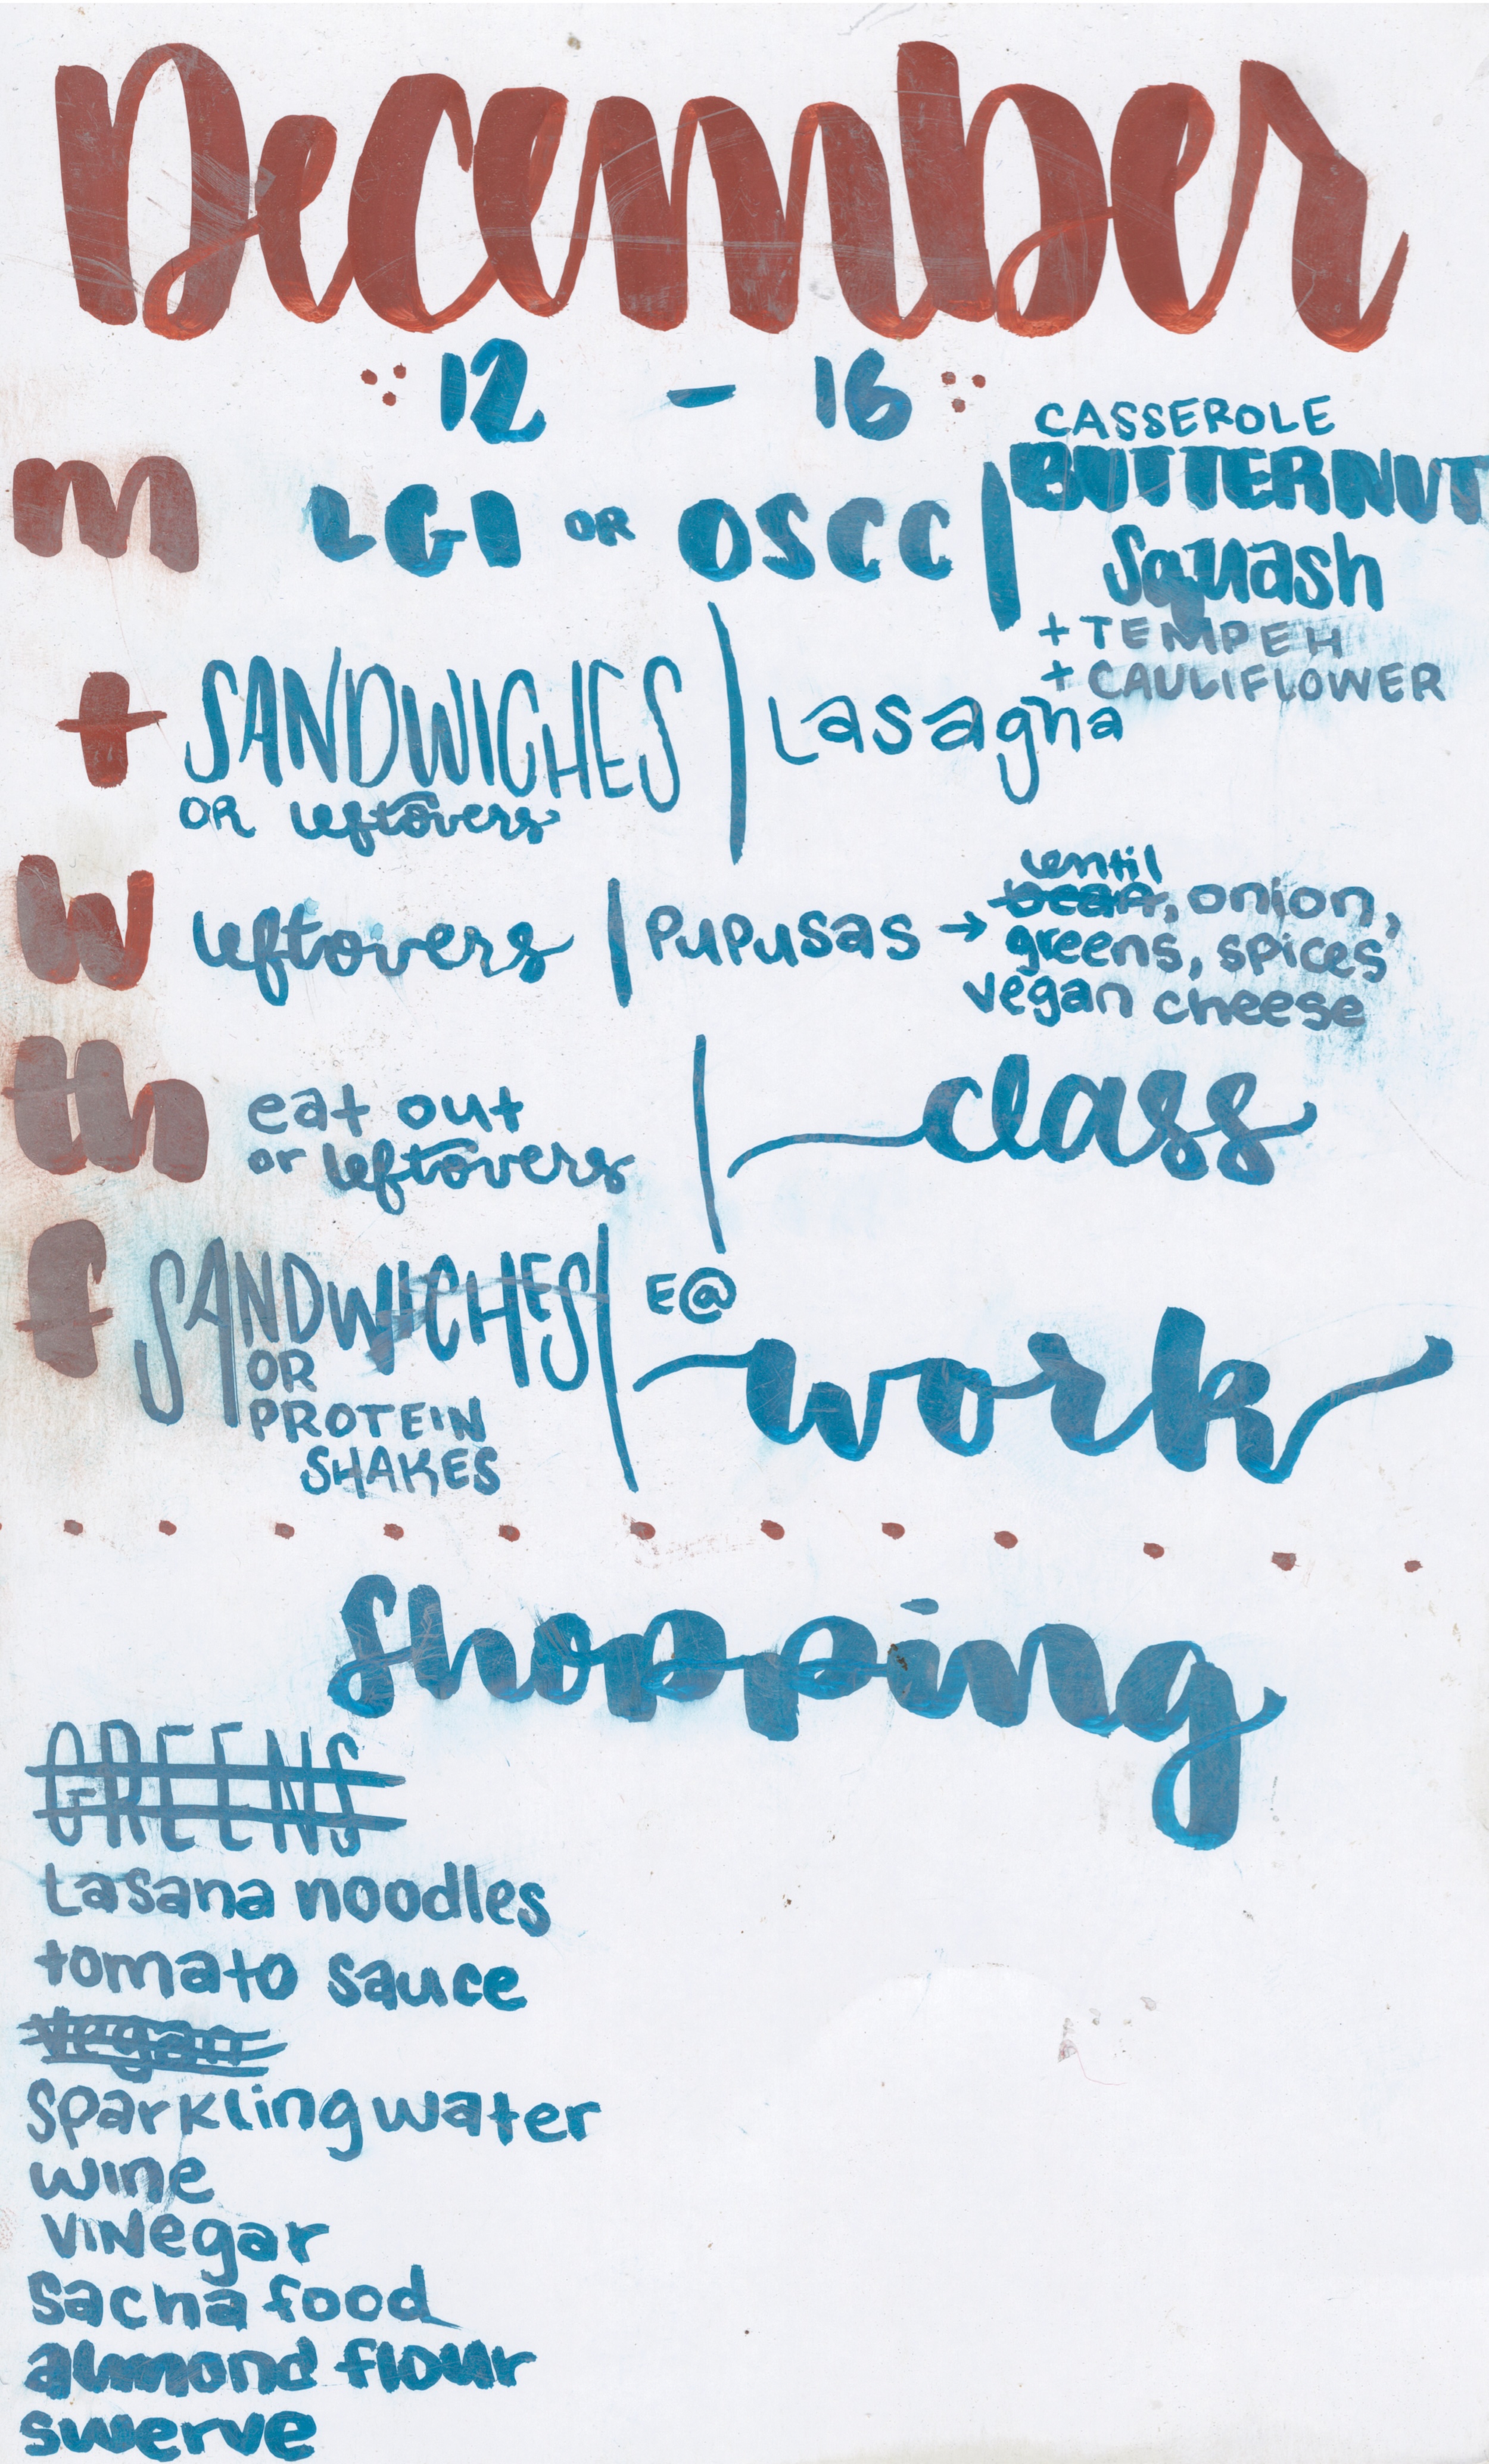 December
12 - 16
m LGI OR OSCC | CASSEROLE
BUTTERNUT
Squash
+ TEMPEH
+ CAULIFLOWER
t SANDWICHES | Lasagna
OR leftovers
w leftovers | PUPUSAS → lentil
bean, onion,
greens, spices
vegan cheese
th eat out | class
or leftovers
f SANDWICHES | E@
work
OR
PROTEIN
SHAKES
Shopping
GREENS
Lasana noodles
tomato sauce
vegan
Sparkling water
wine
VINegar
Sacha food
almond flour
swerve